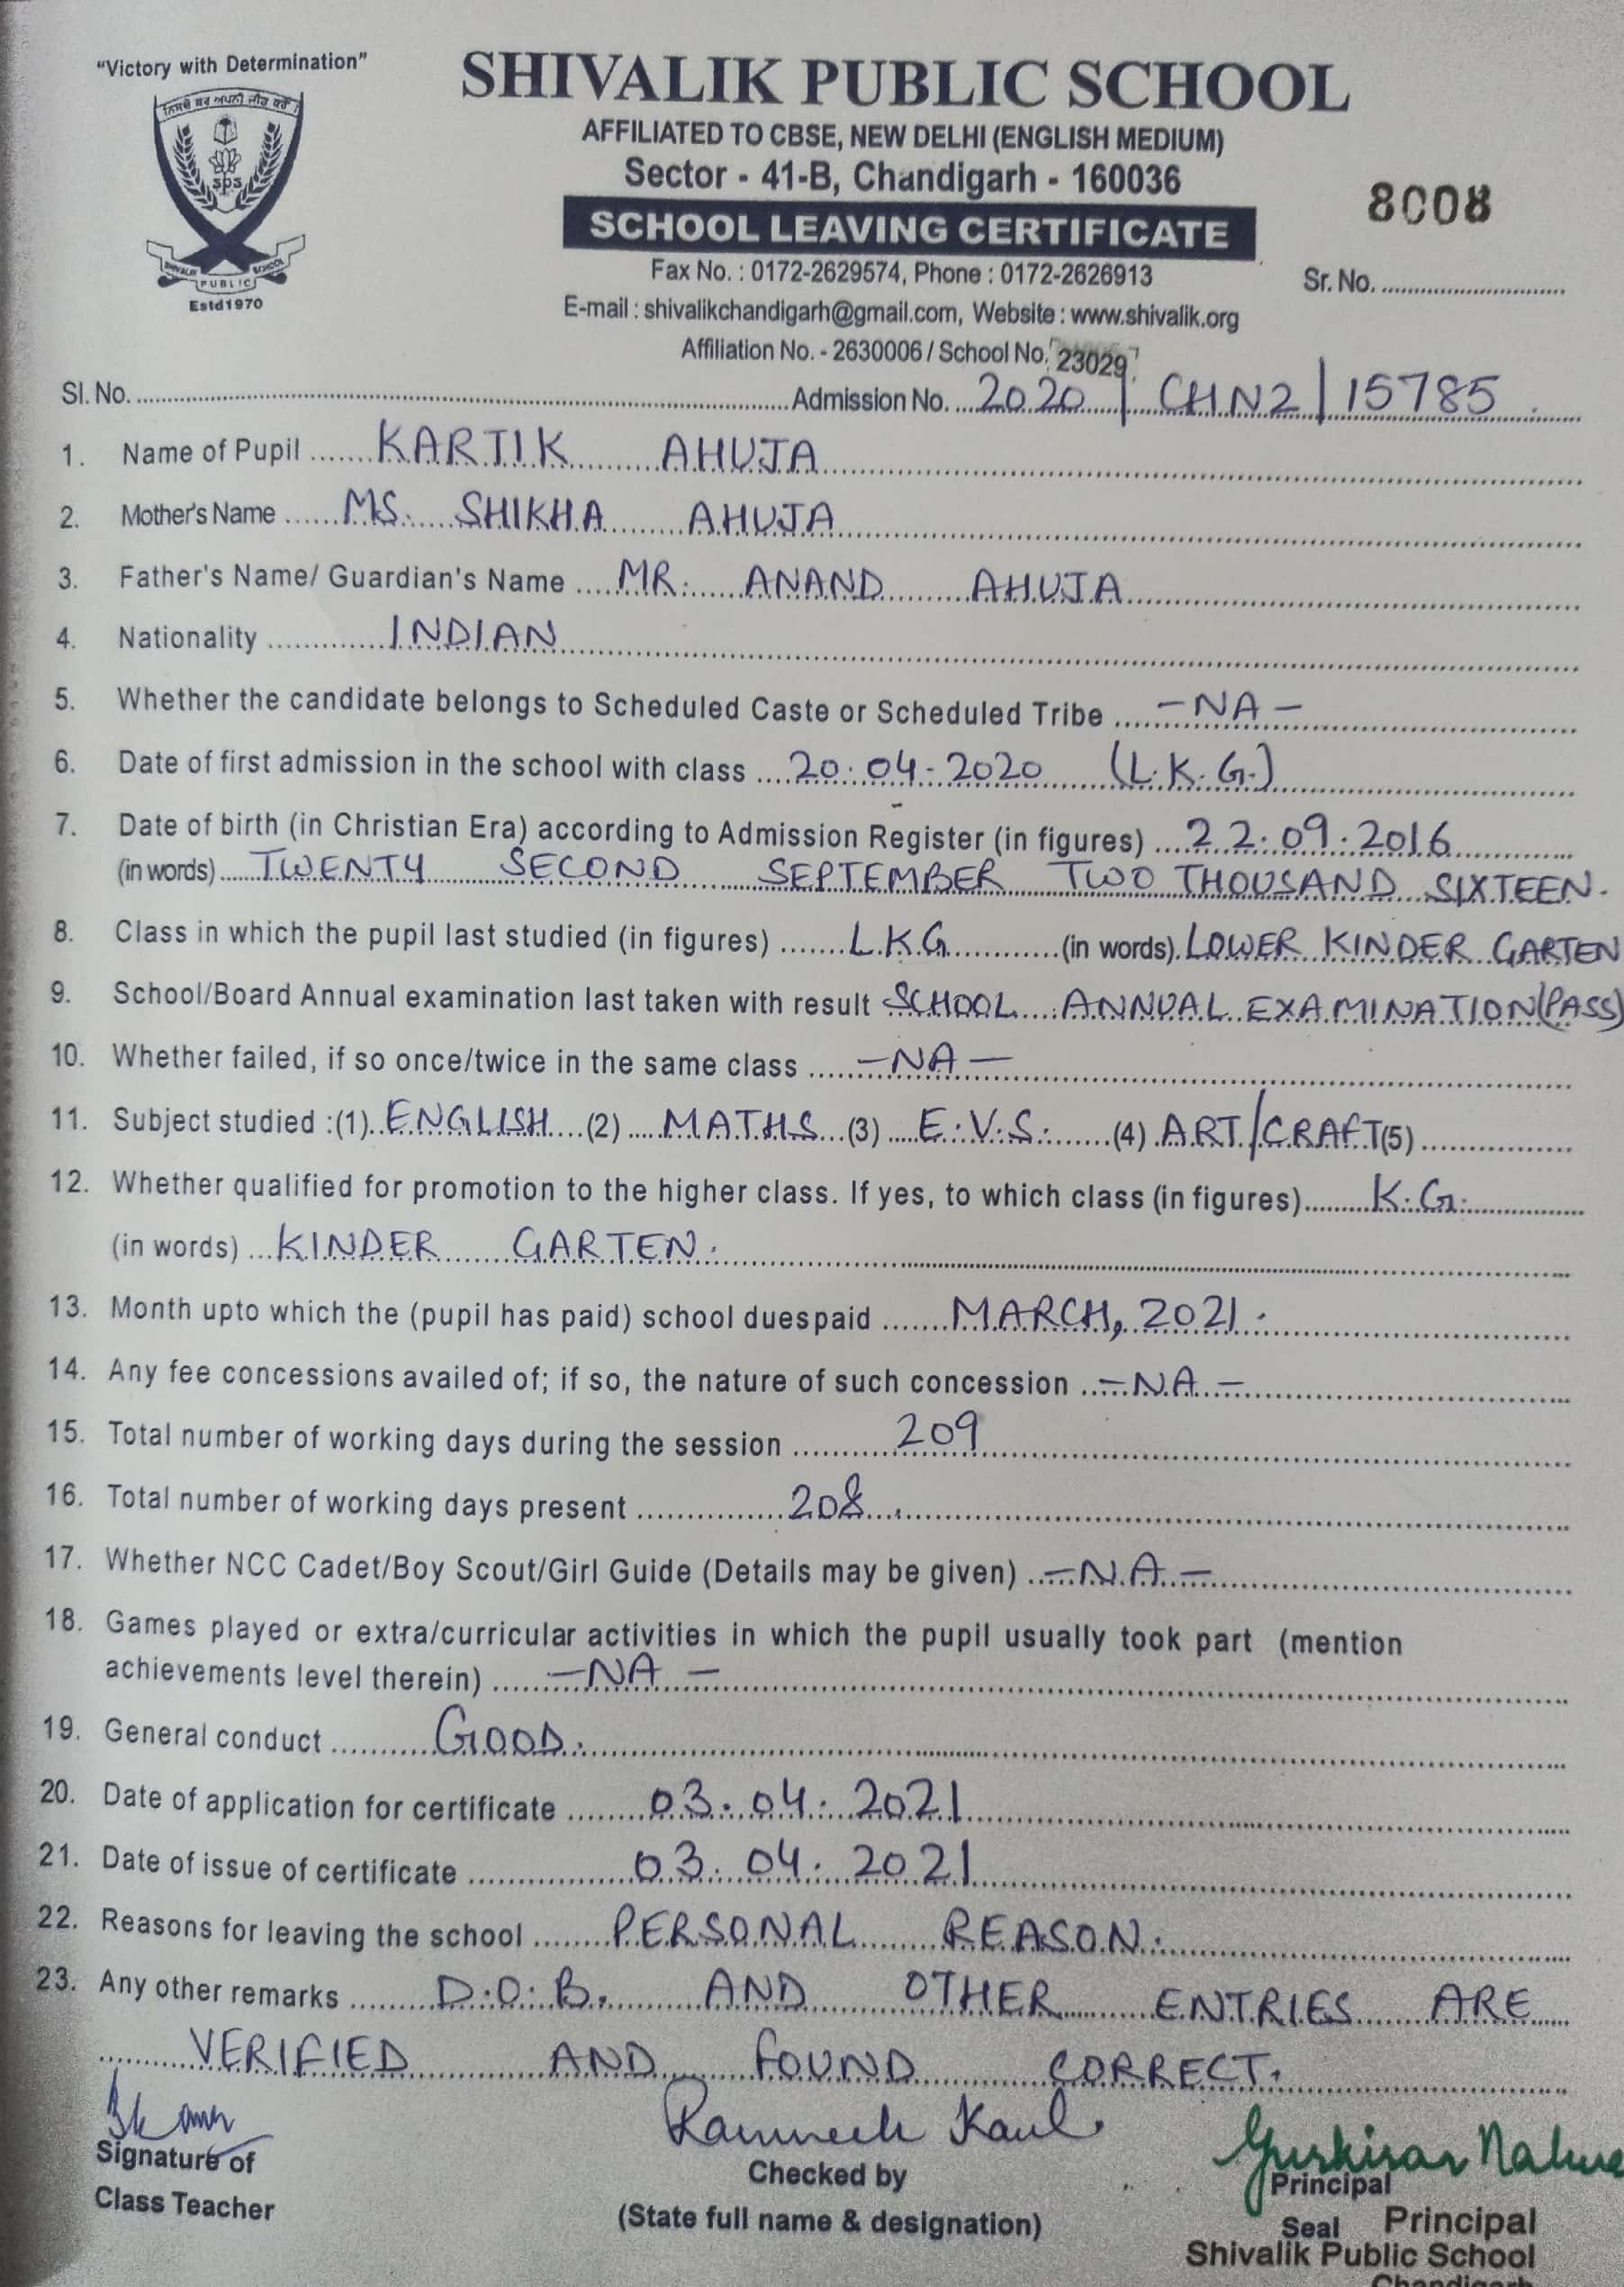 "Victory with Determination"
SHIVALIK PUBLIC SCHOOL
AFFILIATED TO CBSE, NEW DELHI (ENGLISH MEDIUM)
Sector - 41-B, Chandigarh - 160036
8008
SCHOOL LEAVING CERTIFICATE
sps
SHIVALIK PUBLIC SCHOOL
Estd1970
Fax No. : 0172-2629574, Phone : 0172-2626913
Sr. No. ..............................
E-mail : shivalikchandigarh@gmail.com, Website : www.shivalik.org
Affiliation No. - 2630006 / School No. 23029
Sl. No. .............................. Admission No. 2020/CHN2/15785
1. Name of Pupil KARTIK AHUJA
2. Mother's Name MS. SHIKHA AHUJA
3. Father's Name/ Guardian's Name MR. ANAND AHUJA
4. Nationality INDIAN
5. Whether the candidate belongs to Scheduled Caste or Scheduled Tribe -NA-
6. Date of first admission in the school with class 20.04-2020 (L.K.G.)
7. Date of birth (in Christian Era) according to Admission Register (in figures) 22.09.2016
(in words) TWENTY SECOND SEPTEMBER TWO THOUSAND SIXTEEN.
8. Class in which the pupil last studied (in figures) L.K.G (in words) LOWER KINDER GARTEN
9. School/Board Annual examination last taken with result SCHOOL ANNUAL EXAMINATION(PASS)
10. Whether failed, if so once/twice in the same class -NA-
11. Subject studied :(1) ENGLISH (2) MATHS (3) E.V.S. (4) ART/CRAFT (5) ..............
12. Whether qualified for promotion to the higher class. If yes, to which class (in figures) K.G.
(in words) KINDER GARTEN.
13. Month upto which the (pupil has paid) school duespaid MARCH, 2021.
14. Any fee concessions availed of; if so, the nature of such concession -NA-
15. Total number of working days during the session 209
16. Total number of working days present 208.
17. Whether NCC Cadet/Boy Scout/Girl Guide (Details may be given) -NA-
18. Games played or extra/curricular activities in which the pupil usually took part (mention
achievements level therein) -NA-
19. General conduct GOOD.
20. Date of application for certificate 03.04.2021
21. Date of issue of certificate 03.04.2021
22. Reasons for leaving the school PERSONAL REASON.
23. Any other remarks D.O.B. AND OTHER ENTRIES ARE
VERIFIED AND FOUND CORRECT.
Signature of
Class Teacher
Checked by
(State full name & designation)
Principal
Seal Principal
Shivalik Public School
Chandigarh